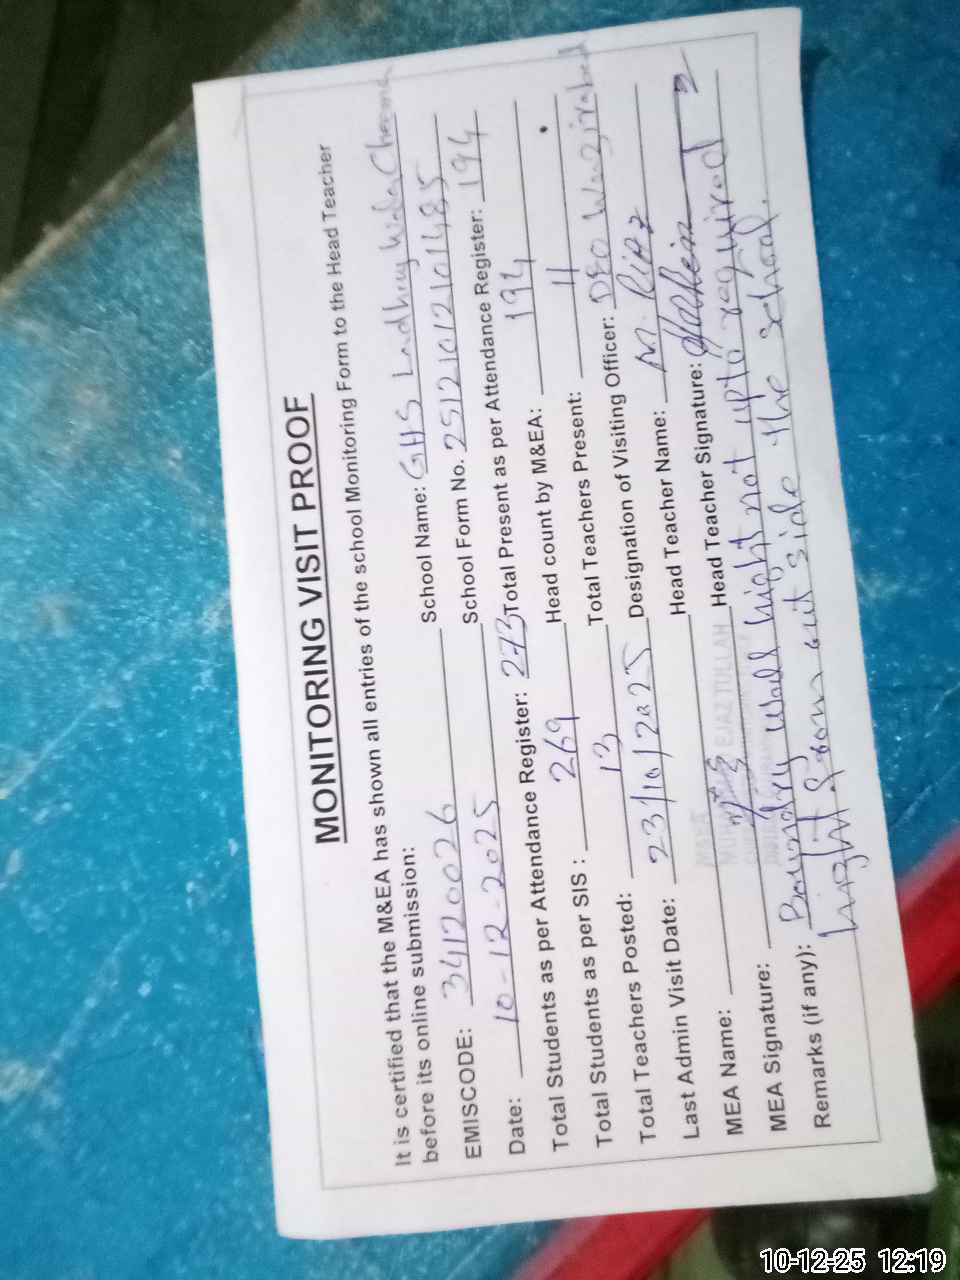 MONITORING VISIT PROOF
It is certified that the M&EA has shown all entries of the school Monitoring Form to the Head Teacher
before its online submission:
EMISCODE: 34120026 School Name: GHS Ladhay Wala Cheema
Date: 10-12-2025 School Form No. 25121012101485
Total Students as per Attendance Register: 273 Total Present as per Attendance Register: 194
Total Students as per SIS: 269 Head count by M&EA: 194
Total Teachers Posted: 13 Total Teachers Present: 11
Last Admin Visit Date: 23/10/2025 Designation of Visiting Officer: DEO Wazirabad
MEA Name: Head Teacher Name: M. Riaz
MEA
EJAZ TULLAH
MEA Signature: Head Teacher Signature:
Remarks (if any): Boundry wall hight not upto required
hight from out side the school.
10-12-25 12:19